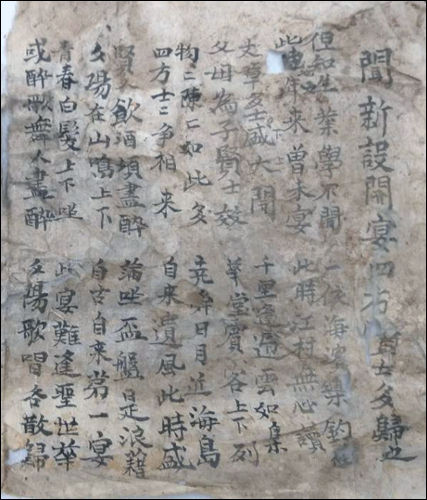 聞新設開宴四方賢士多歸之
但知生業學不聞 一依海宴集釣
此年來曾未宴 此時江村無心讀
文章至盛大開 千里逢迎雲如集
父母為子賢士效 華堂賓客上下列
物〻陳〻如此多 堯舜日月近海島
四方士〻爭相來 自来遺風此時盛
賢多飲酒頃盡醉 坐盃盤是浪藉
夕陽在山鳴上下 自古自来第一宴
青春白髮上下坐 此宴難逢聖世華
或醉歌舞人盡醉 夕陽歌唱各散歸